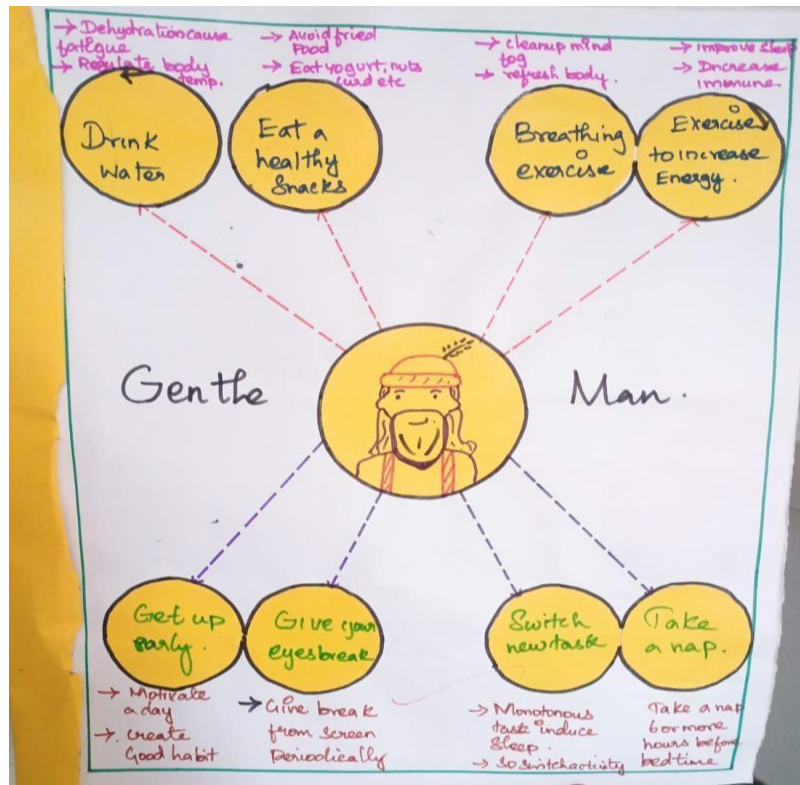 → Dehydration cause
fatigue
→ Regulate body
temp.
→ Avoid fried
Food
→ Eat yogurt, nuts
curd etc
→ cleanup mind
fog
→ refresh body.
→ Improve sleep
→ Increase
immune.
Drink
water
Eat a
healthy
Snacks
Breathing
exercise
Exercise
to increase
Energy.
Gentle
Man.
Get up
early.
Give your
eyes break
Switch
new task
Take
a nap.
→ Motivate
a day
→ create
Good habit
→ Give break
from screen
Periodically
→ Monotonous
task induce
Sleep.
→ So switch activity
Take a nap
6 or more
hours before
bedtime